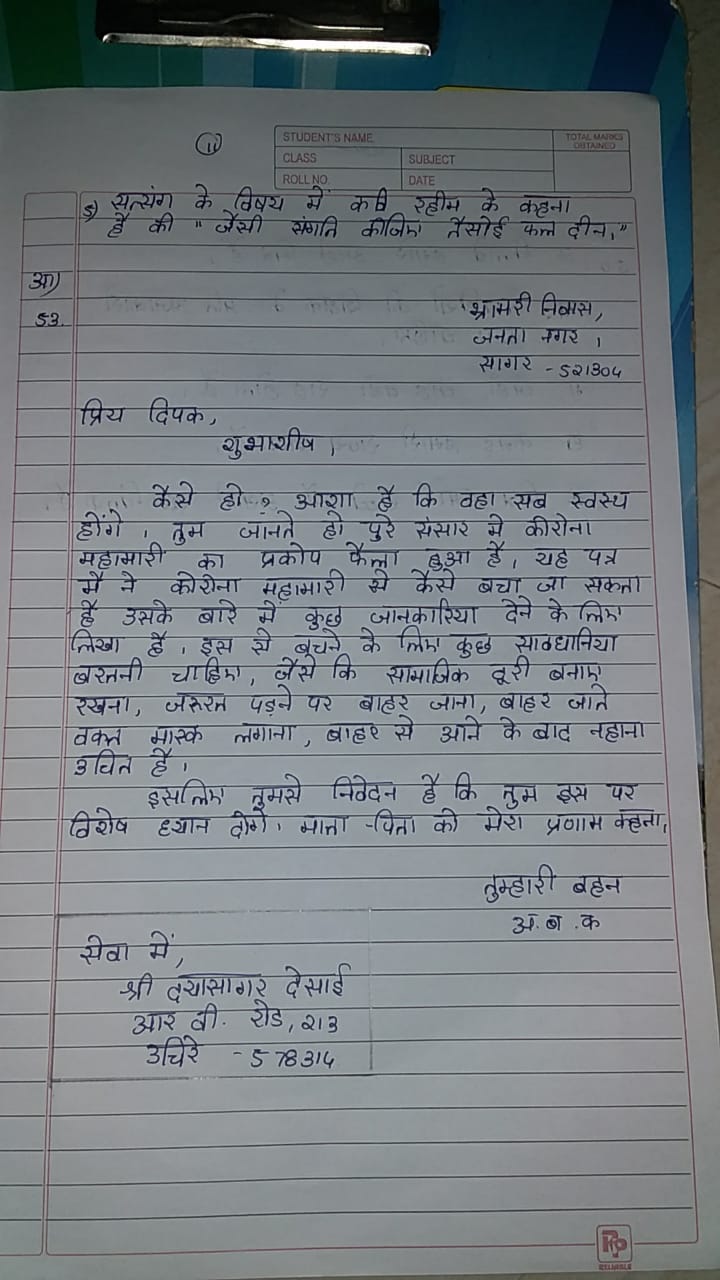 11
STUDENT'S NAME
TOTAL MARKS OBTAINED
CLASS
SUBJECT
ROLL NO.
DATE
5) सत्संग के विषय में कवि रहीम के कहना
है की " जैसी संगति कीजिए तैसोई फल दीन।"
आ)
53.
श्रामरी निवास,
जनता नगर,
सागर - 521304
प्रिय दिपक,
शुभाशीष।
कैसे हो? आशा है कि वहा सब स्वस्थ
होंगे। तुम जानते हो पुरे संसार मे कोरोना
महामारी का प्रकोप फैला हुआ है, यह पत्र
मैं ने कोरोना महामारी से कैसे बचा जा सकता
है उसके बारे में कुछ जानकारिया देने के लिए
लिखा है। इस से बचने के लिए कुछ सावधानिया
बरतनी चाहिए, जैसे कि सामाजिक दूरी बनाए
रखना, जरुरत पड़ने पर बाहर जाना, बाहर जाते
वक्त मास्क लगाना, बाहर से आने के बाद नहाना
उचित है।
इसलिए तुमसे निवेदन है कि तुम इस पर
विशेष ध्यान दोगे। माता -पिता को मेरा प्रणाम कहना।
तुम्हारी बहन
अ.ब.क
सेवा में,
श्री दयासागर देसाई
आर वी. रोड, 213
उचिरे - 578314
RELIABLE